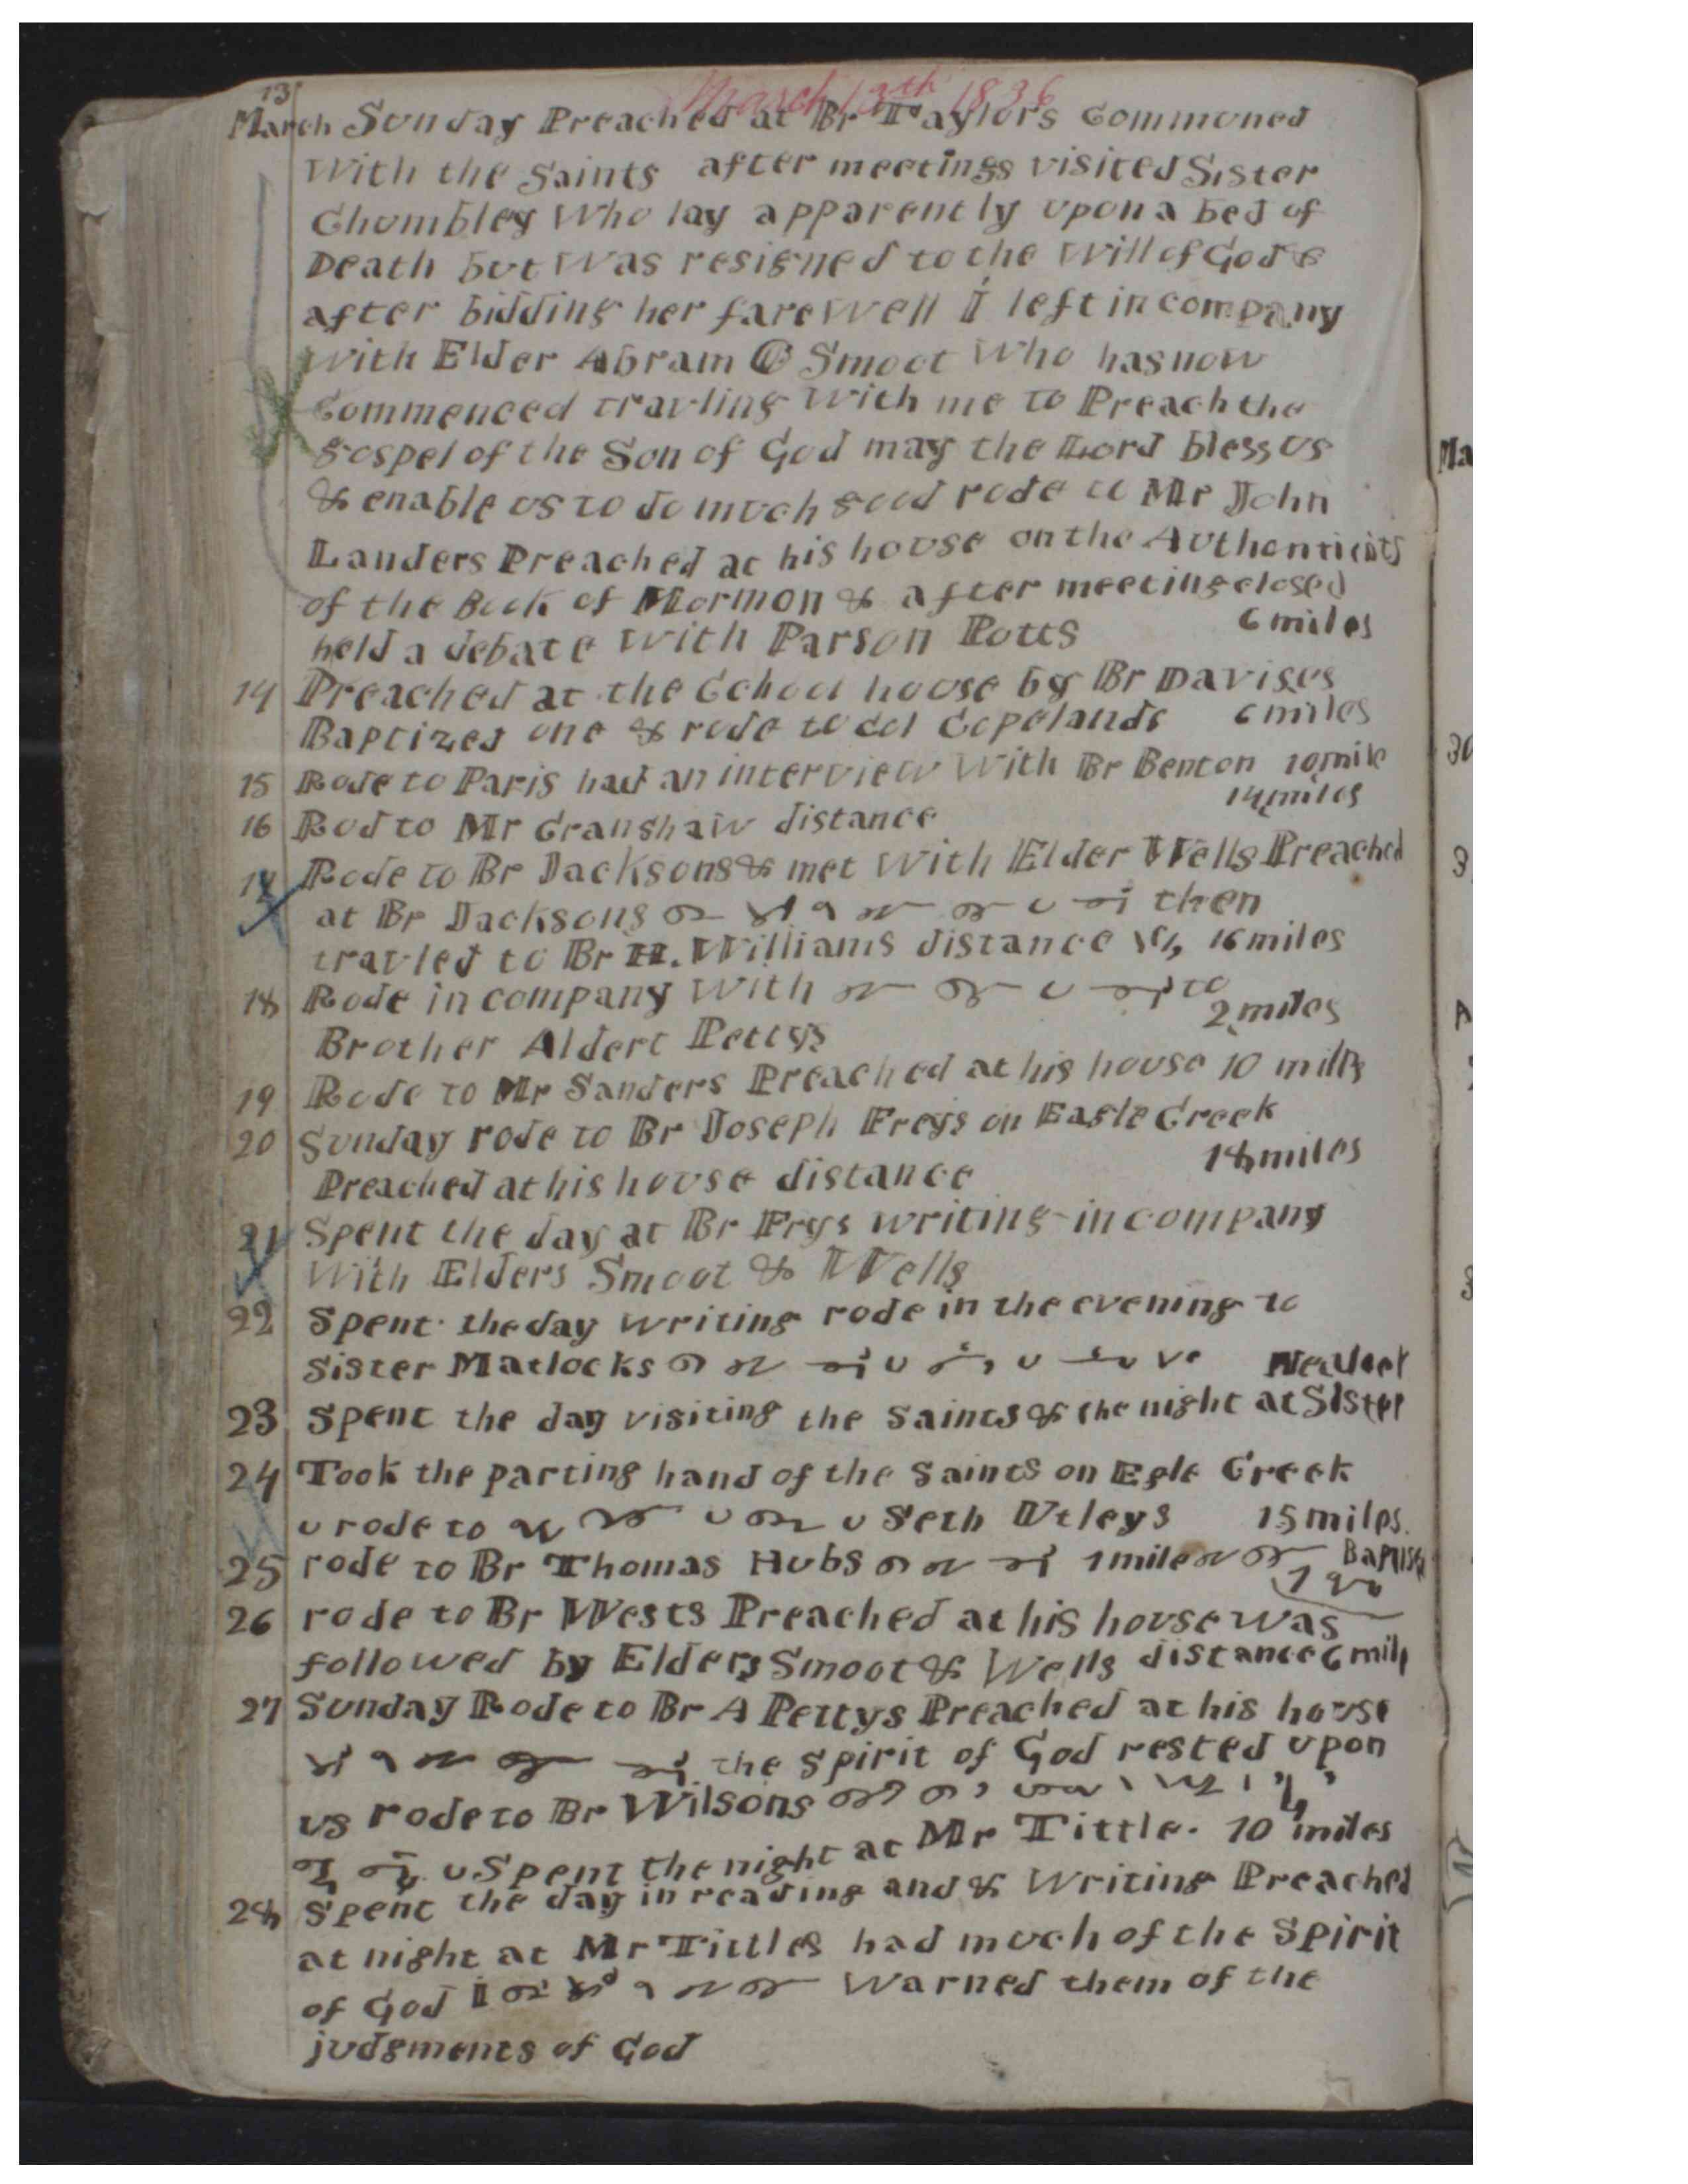 March 13th 1836
13
March Sunday Preached at Br Taylors Communed
With the Saints after meetings visited Sister
Chumbley Who lay apparently upon a bed of
Death but was resigned to the Will of God &
after bidding her farewell I left in company
with Elder Abram O Smoot Who has now
Commenced travling with me to Preach the
gospel of the Son of God may the Lord bless us
& enable us to do much good rode to Mr John
Landers Preached at his house on the Authenticity
of the Book of Mormon & after meeting closed
held a debate with Parson Potts 6 miles
14 Preached at the School house by Br Davises
Baptized one & rode to col Copelands 6 miles
15 Rode to Paris had an interview With Br Benton 10 mile
16 Rod to Mr Cranshaw distance 14 miles
17 Rode to Br Jacksons & met with Elder Wells Preached
at Br Jacksons then
travled to Br H. Williams distance 16 miles
18 Rode in company With to
Brother Aldert Pettys 2 miles
19 Rode to Mr Sanders Preached at his house 10 mills
20 Sunday rode to Br Joseph Freys on Eagle Creek
Preached at his house distance 18 miles
21 Spent the day at Br Frys writing in company
With Elders Smoot & Wells
22 Spent the day writing rode in the evening to
Sister Matlocks
23 Spent the day visiting the Saints & the night at Sister
24 Took the parting hand of the Saints on Egle Creek
rode to Seth Utleys 15 miles.
25 rode to Br Thomas Hubs 1 mile
26 rode to Br Wests Preached at his house was
followed by Elders Smoot & Wells distance 6 mil
27 Sunday Rode to Br A Pettys Preached at his house
the spirit of God rested upon
us rode to Br Wilsons
Spent the night at Mr Tittle. 10 miles
28 Spent the day in reading and & Writing Preached
at night at Mr Tittles had much of the Spirit
of God I Warned them of the
judgments of God